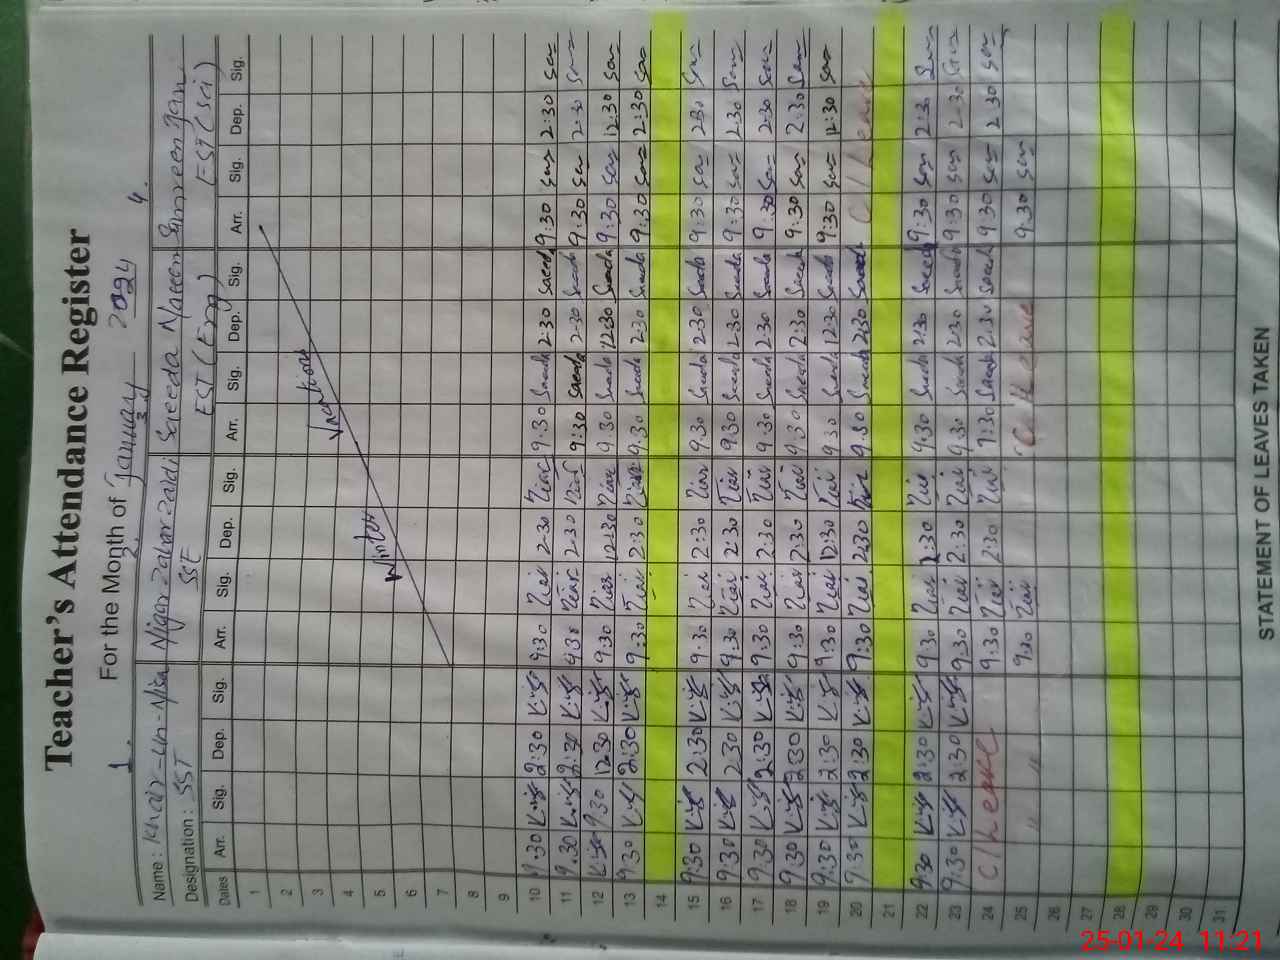 Teacher's Attendance Register
For the Month of January 2024
1. 2. 3. 4.
Name : Khair-un-Nisa Nigar zahar zaidi Saeeda Naseem Samreen gan
Designation : SST SST EST (Eng) EST (Sci)
Dates Arr. Sig. Dep. Sig. Arr. Sig. Dep. Sig. Arr. Sig. Dep. Sig. Arr. Sig. Dep. Sig.
1
2
3
4
5
6
7
Winter Vacations
8
9
10 9:30 2:30 9:30 2:30 9:30 Saeeda 2:30 Saeeda 9:30 Sam 2:30 Sam
11 9:30 2:30 9:30 2:30 9:30 Saeeda 2:30 Saeeda 9:30 Sam 2:30 Sam
12 9:30 12:30 9:30 12:30 9:30 Saeeda 12:30 Saeeda 9:30 Sam 12:30 Sam
13 9:30 2:30 9:30 2:30 9:30 Saeeda 2:30 Saeeda 9:30 Sam 2:30 Sam
14
15 9:30 2:30 9:30 2:30 9:30 Saeeda 2:30 Saeeda 9:30 Sam 2:30 Sam
16 9:30 2:30 9:30 2:30 9:30 Saeeda 2:30 Saeeda 9:30 Sam 2:30 Sam
17 9:30 2:30 9:30 2:30 9:30 Saeeda 2:30 Saeeda 9:30 Sam 2:30 Sam
18 9:30 2:30 9:30 2:30 9:30 Saeeda 2:30 Saeeda 9:30 Sam 2:30 Sam
19 9:30 2:30 9:30 12:30 9:30 Saeeda 12:30 Saeeda 9:30 Sam 12:30 Sam
20 9:30 2:30 9:30 2:30 9:30 Saeeda 2:30 Saeeda C/Leave
21
22 9:30 2:30 9:30 2:30 9:30 Saeeda 2:30 Saeeda 9:30 Sam 2:30 Sam
23 9:30 2:30 9:30 2:30 9:30 Saeeda 2:30 Saeeda 9:30 Sam 2:30 Sam
24 C/Leave 9:30 2:30 9:30 Saeeda 2:30 Saeeda 9:30 Sam 2:30 Sam
25 " " 9:30 C/Leave 9:30 Sam
26
27
28
29
30
31
STATEMENT OF LEAVES TAKEN
25-01-24 11:21